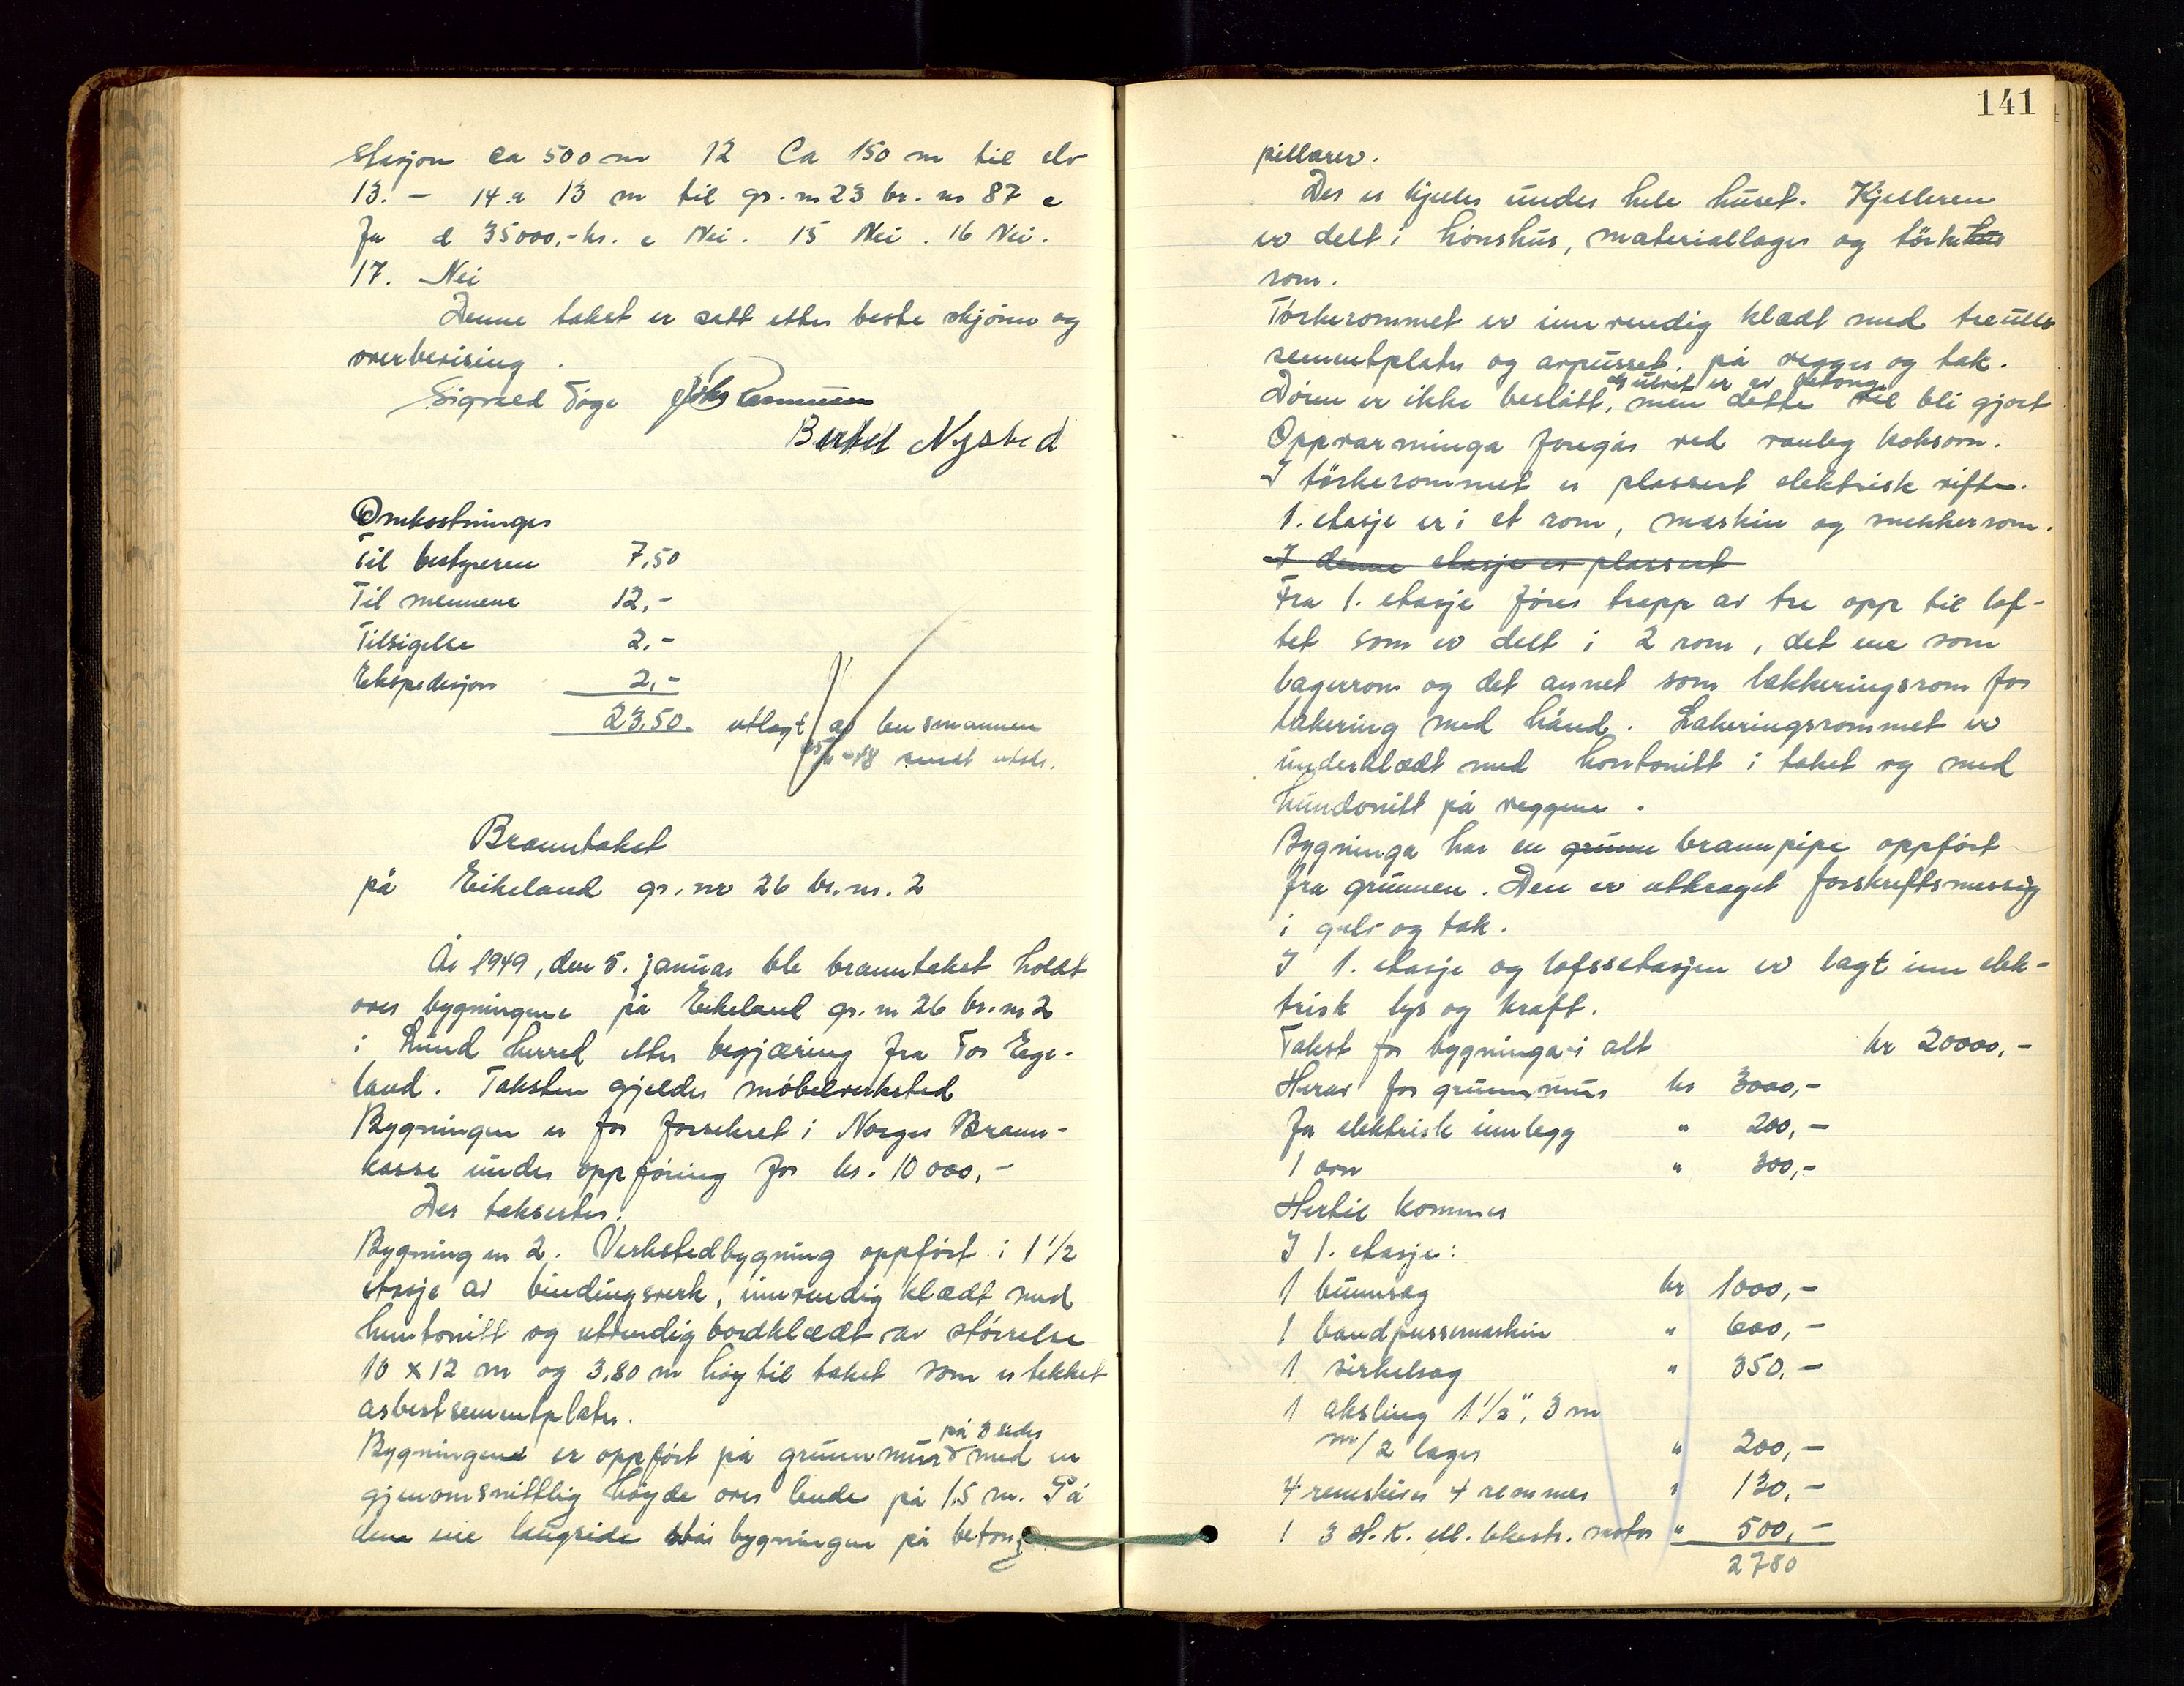 stasjon ca 500 m 12 Ca 150 m til elv
13. - 14.a 13 m til gr. nr 23 br. nr 87 c
Ja d 35000,- kr. e Nei. 15 Nei. 16 Nei.
17. Nei
Denne takst er satt etter beste skjönn og
overbevising.
Sigvald Töge
Bertel Nysted
Omkostninger
Til bestyreren 7,50
Til mennene 12,-
Tilsigelse 2,-
Ekspedisjon 2,-
23,50. utlagt av lensmannen
-48 sendt utskr.
Branntakst
på Eikeland gr. nr 26 br. nr. 2
År 1949, den 5. januar ble branntakst holdt
over bygningene på Eikeland gr. nr 26 br. nr 2
i Lund herred etter begjæring fra Tor Ege-
land. Taksten gjelder möbelverksted
Bygningen er för forsikret i Norges Brann-
kasse under oppföring for kr. 10 000,-
Der takserter:
Bygning nr 2. Verkstedbygning oppfört i 1 1/2
etasje av bindingsverk, innvendig klædt med
huntonitt og utvendig bordklædt av störrelse
10 x 12 m og 3,80 m höy til taket som er tekket
asbestsementplater.
på 3 sider
Bygningene er oppfört på grunnmur med en
gjenomsnittlig höyde over lende på 1,5 m. På
den ene langside står bygningen på betong
141
pillarer.
Der er kjeller under hele huset. Kjelleren
er delt i hönshus, materiallager og törkehus
rom.
Törkerommet er innvendig klædt med treulls
sementplater og avpusset på vegger og tak.
gulvet er av betong
Dören er ikke beslått, men dette vil bli gjort
Oppvarminga foregår ved vanleg koksovn.
I törkerommet er plassert elektrisk vifte.
1. etasje er i et rom, maskin og snekkerrom.
I denne etasje er plassert
Fra 1. etasje förer trapp av tre opp til lof-
tet som er delt i 2 rom, det ene som
lagerrom og det annet som lakkeringsrom for
lakering med hånd. Lakeringsrommet er
underklædt med hontonitt i taket og med
hundonitt på veggene.
Bygninga har en grunn brannpipe oppfört
fra grunnen. Den er utkraget forskriftsmessig
i gulv og tak.
I 1. etasje og loftsetasjen er lagt inn elek-
trisk lys og kraft.
Takst for bygninga i alt kr 20000,-
Herav for grunnmur kr 3000,-
for elektrisk innlegg " 200,-
1 ovn " 300,-
Hertil kommer
I 1. etasje:
1 bunnsag kr 1000,-
1 bandpussemaskin " 600,-
1 sirkelsag " 350,-
1 aksling 1 1/2", 3 m
m/2 lager " 200,-
4 remskiver 4 remmer " 130,-
1 3 H.K. motor " 500,-
2780